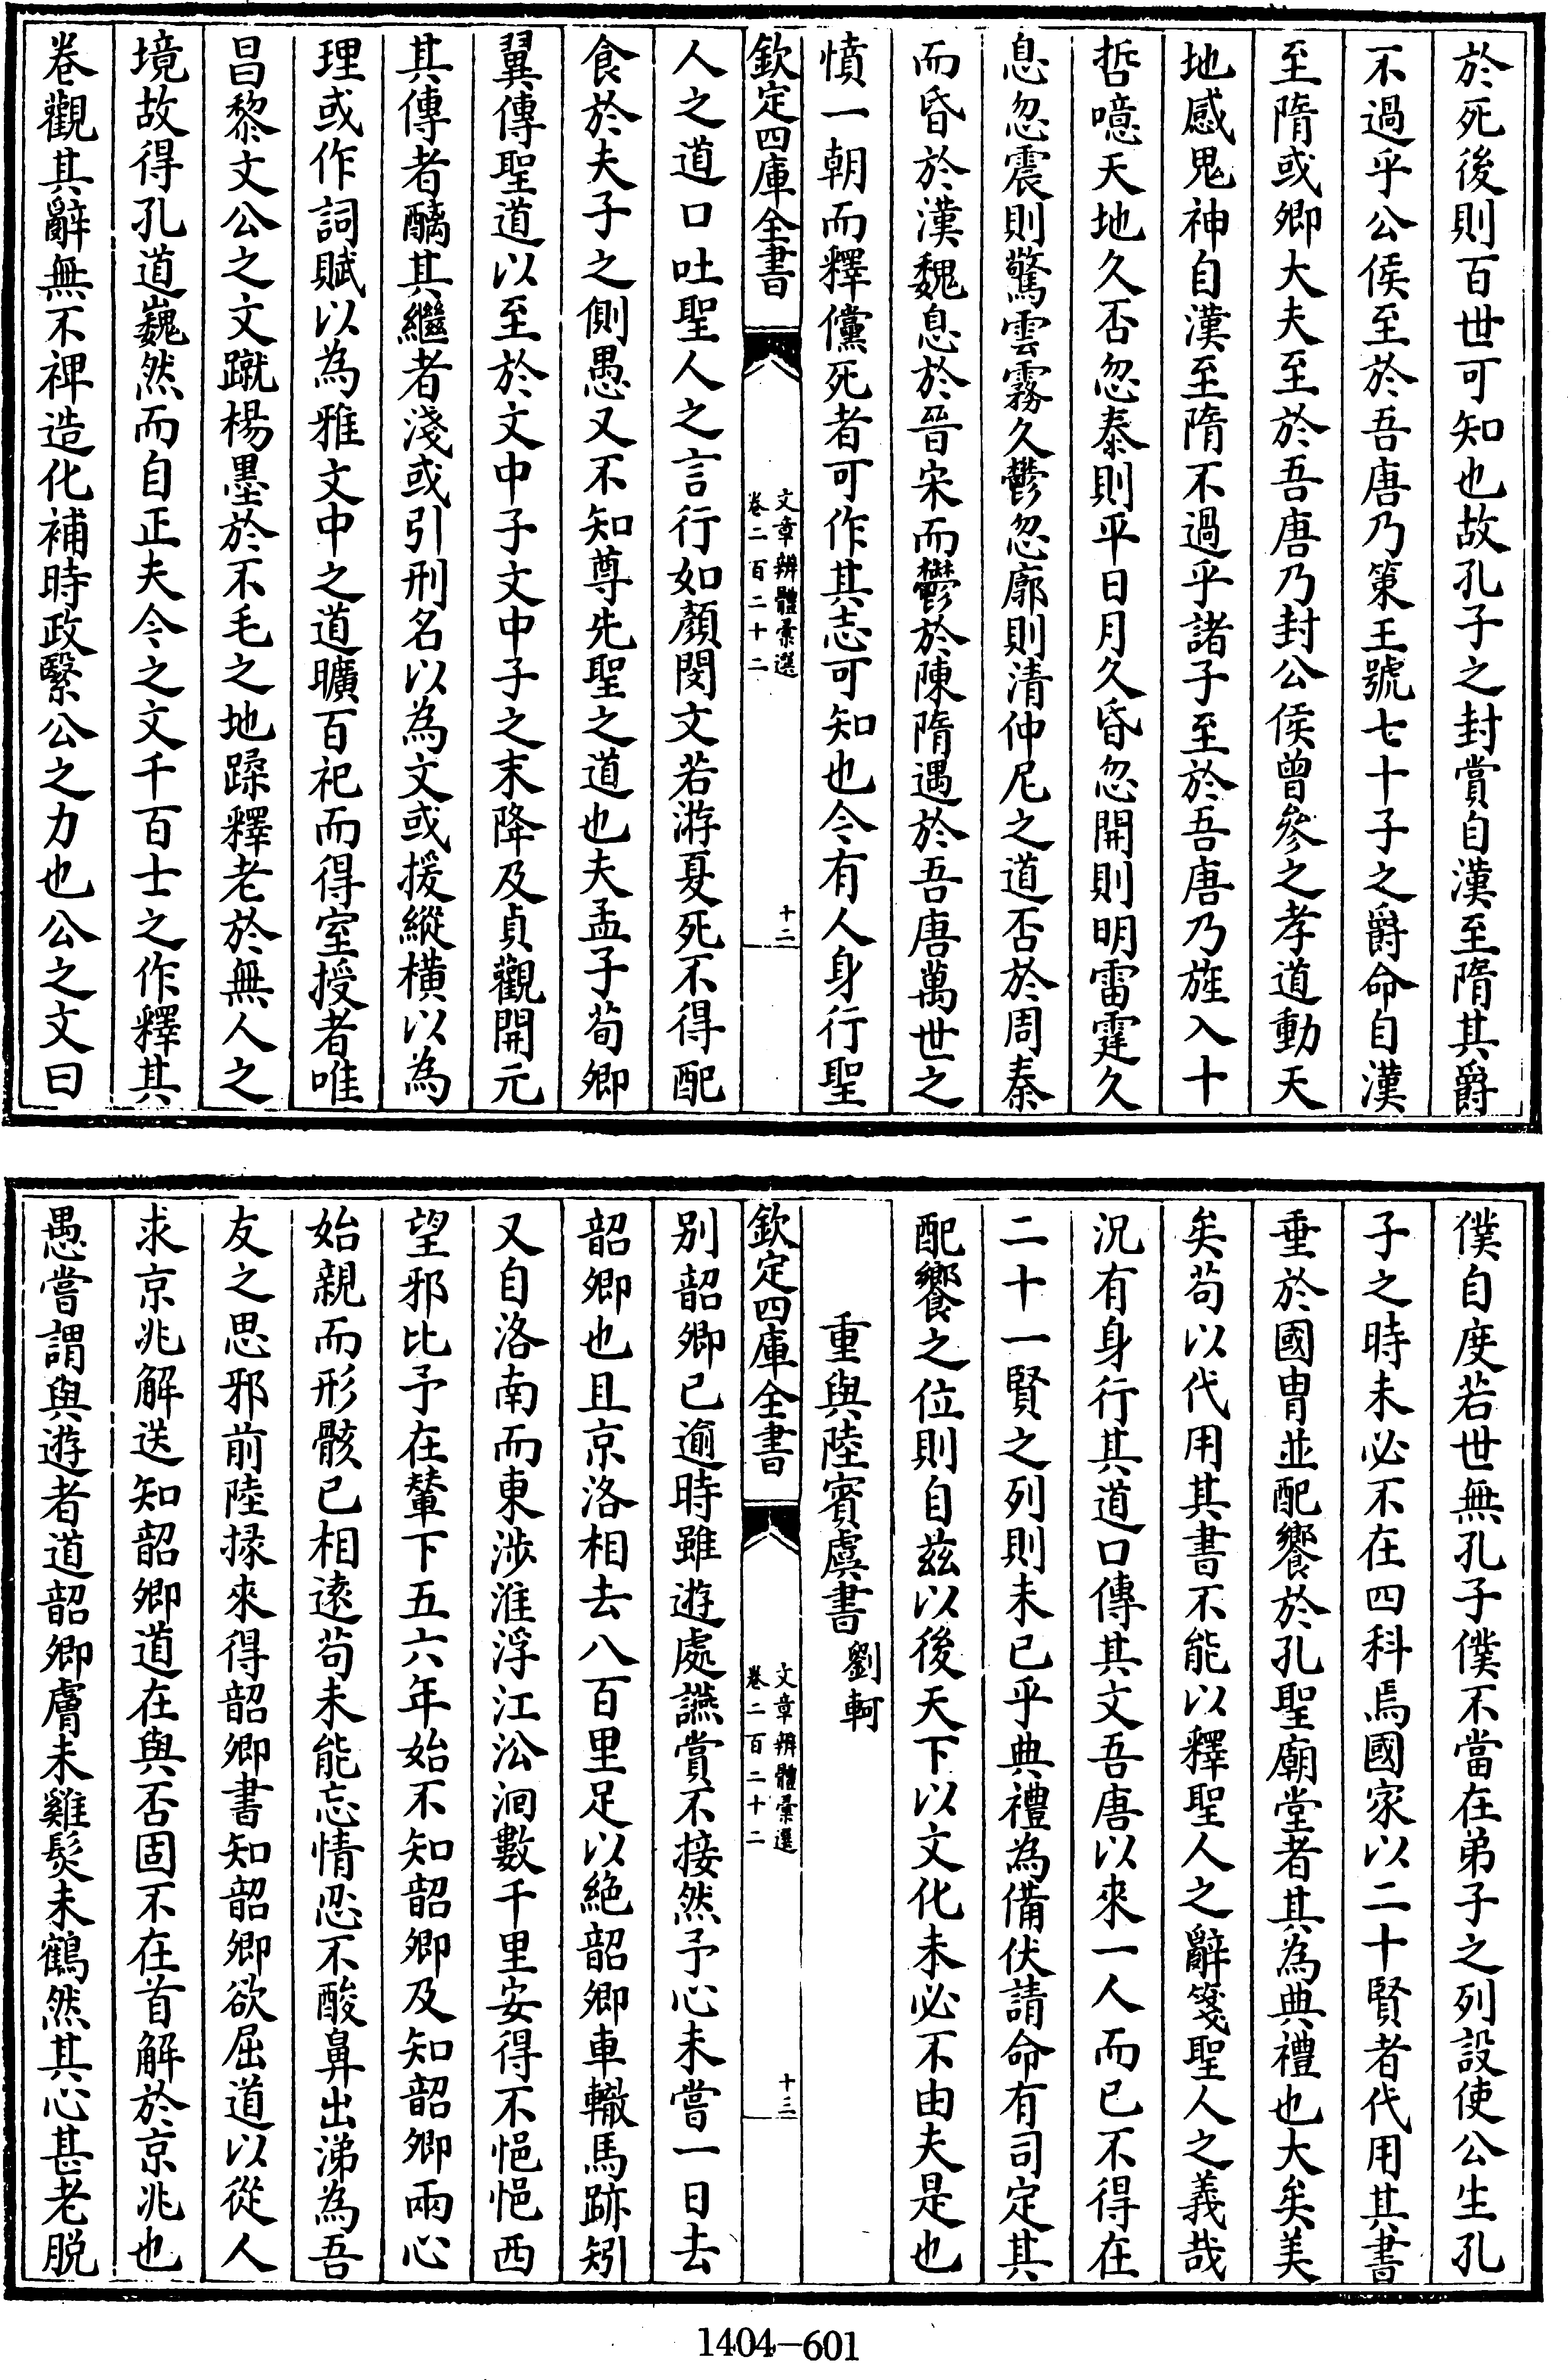 於死後則百世可知也故孔子之封賞自漢至隋其爵
不過乎公侯至於吾唐乃策王號七十子之爵命自漢
至隋或卿大夫至於吾唐乃封公侯曾參之孝道動天
地感鬼神自漢至隋不過乎諸子至於吾唐乃旌入十
哲噫天地久否忽泰則平日月久昏忽開則明雷霆久
息忽震則驚雲霧久鬱忽廓則清仲尼之道否於周秦
而昏於漢魏息於晉宋而鬱於陳隋遇於吾唐萬世之
憤一朝而釋儻死者可作其志可知也今有人身行聖
欽定四庫全書
文章辨體彙選
卷二百二十二
十二
人之道口吐聖人之言行如顏閔文若游夏死不得配
食於夫子之側愚又不知尊先聖之道也夫孟子荀卿
翼傳聖道以至於文中子文中子之末降及貞觀開元
其傳者醨其繼者淺或引刑名以為文或援縱橫以為
理或作詞賦以為雅文中之道曠百祀而得室授者唯
昌黎文公之文蹴楊墨於不毛之地蹂釋老於無人之
境故得孔道巍然而自正夫今之文千百士之作釋其
卷觀其辭無不禆造化補時政繄公之力也公之文曰
僕自度若世無孔子僕不當在弟子之列設使公生孔
子之時未必不在四科焉國家以二十賢者代用其書
垂於國胄並配饗於孔聖廟堂者其為典禮也大矣美
矣苟以代用其書不能以釋聖人之辭箋聖人之義哉
況有身行其道口傳其文吾唐以來一人而已不得在
二十一賢之列則未已乎典禮為備伏請命有司定其
配饗之位則自兹以後天下以文化未必不由夫是也
重與陸賓虞書
劉軻
欽定四庫全書
文章辨體彙選
卷二百二十二
十三
別韶卿已逾時雖遊處讌賞不接然予心未嘗一日去
韶卿也且京洛相去八百里足以絶韶卿車轍馬跡矧
又自洛南而東涉淮浮江沿洄數千里安得不悒悒西
望邪比予在輦下五六年始不知韶卿及知韶卿兩心
始親而形骸已相逺苟未能忘情忍不酸鼻出涕為吾
友之思邪前陸掾來得韶卿書知韶卿欲屈道以從人
求京兆解送知韶卿道在與否固不在首解於京兆也
愚嘗謂與遊者道韶卿膚未雞髮未鶴然其心甚老脱
1404-601